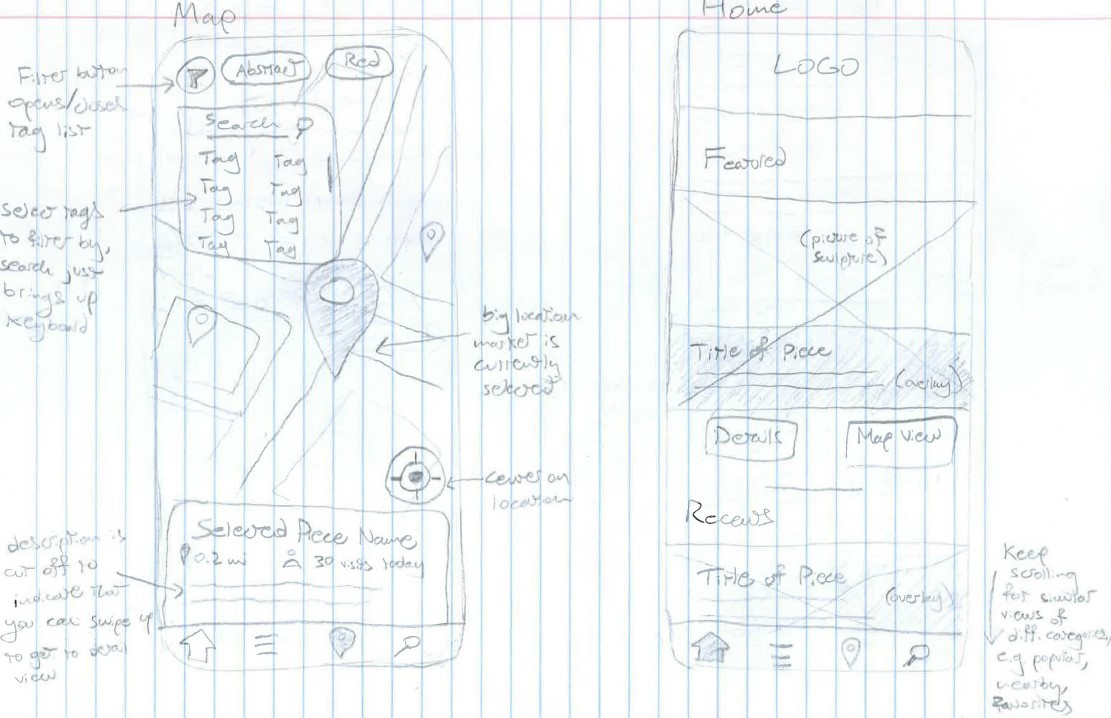 Map
Filter button
opens/closes
tag list
Abstract
Red
Search
Tag Tag
Tag Tag
Tag Tag
Tag Tag
select tags
to filter by,
search just
brings up
keyboard
big location
market is
currently
selected
center on
location
Selected Piece Name
0.2 mi 30 visits today
description is
cut off to
indicate that
you can swipe up
to get to detail
view
Home
LOGO
Featured
(picture of
sculpture)
Title of Piece
(overlay)
Details
Map View
Recents
Title of Piece
(overlay)
Keep
scrolling
for similar
views of
diff. categories,
e.g popular,
nearby,
favorites